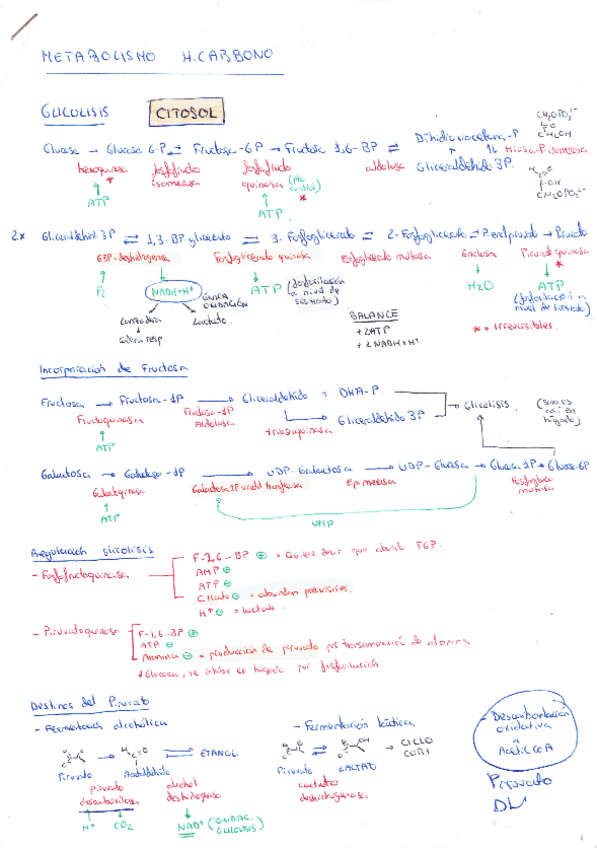 METABOLISMO H. CARBONO
GLICOLISIS CITOSOL
CH2OPO3 2-
CH2OH
Glucosa → Glucosa 6-P ⇌ Fructosa-6P → Fructosa 1,6-BP ⇌ Dihidroxiacetona-P
hexoquinasa * fosfofructo quinasa * aldolasa Gliceraldehido 3P. triosa-P isomerasa
isomerasa
ATP
ATP
2x Gliceraldehido 3P ⇌ 1,3-BP-glicerato ⇌ 3-Fosfoglicerato ⇌ 2-Fosfoglicerato ⇌ → Piruvato
G3P-deshidrogenasa Fosfoglicerato quinasa Fosfoglicerato mutasa Enolasa Piruvato quinasa *
Pi NADH+H+ ATP (fosforilación a nivel de sustrato) H2O ATP (fosforilación a nivel de sustrato)
ÚNICA OXIDACIÓN
Lanzadera Lactato
Cadena resp.
BALANCE
+ 2ATP
+ 2 NADH+H+
* = Irreversibles.
Incorporación de Fructosa
Fructosa → Fructosa-1P → Gliceraldehido + DHA-P → Glicolisis
Fructoquinasa Fructosa-1P Aldolasa Gliceraldehido 3P
triosaquinasa
ATP
Galactosa → Galactosa-1P → UDP-Galactosa → UDP-Glucosa → Glucosa 1P → Glucosa 6P
Galactoquinasa Galactosa 1P uridil transferasa Epimerasa Fosfogluco mutasa
ATP
Regulación glicolisis
- Fosfofructoquinasa
F-2,6-BP ⊕ = Quiere decir que abund F6P.
AMP ⊕
ATP ⊖
Citrato ⊖ = abundan precursores.
H+ ⊖ = lactato.
- Piruvatoquinasa
F-1,6-BP ⊕
ATP ⊖
Alanina ⊖ = producción de piruvato por transaminación de alanina
↓ Glucosa, se inhibe en hígado por fosforilación
Destinos del Piruvato
- Fermentación alcohólica
Piruvato → Acetaldehido ⇌ ETANOL
Piruvato descarboxilasa alcohol deshidrogenasa
H+ CO2 NAD+ (OXIDAC. GLICOLISIS)
- Fermentación láctica
Piruvato ⇌ LACTATO → CICLO CORI
lactato deshidrogenasa
- Descarboxilación oxidativa a Acetil CoA
Piruvato